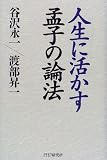 人生に活かす
孟子の論法
谷沢永一
渡部昇一
PHP研究所